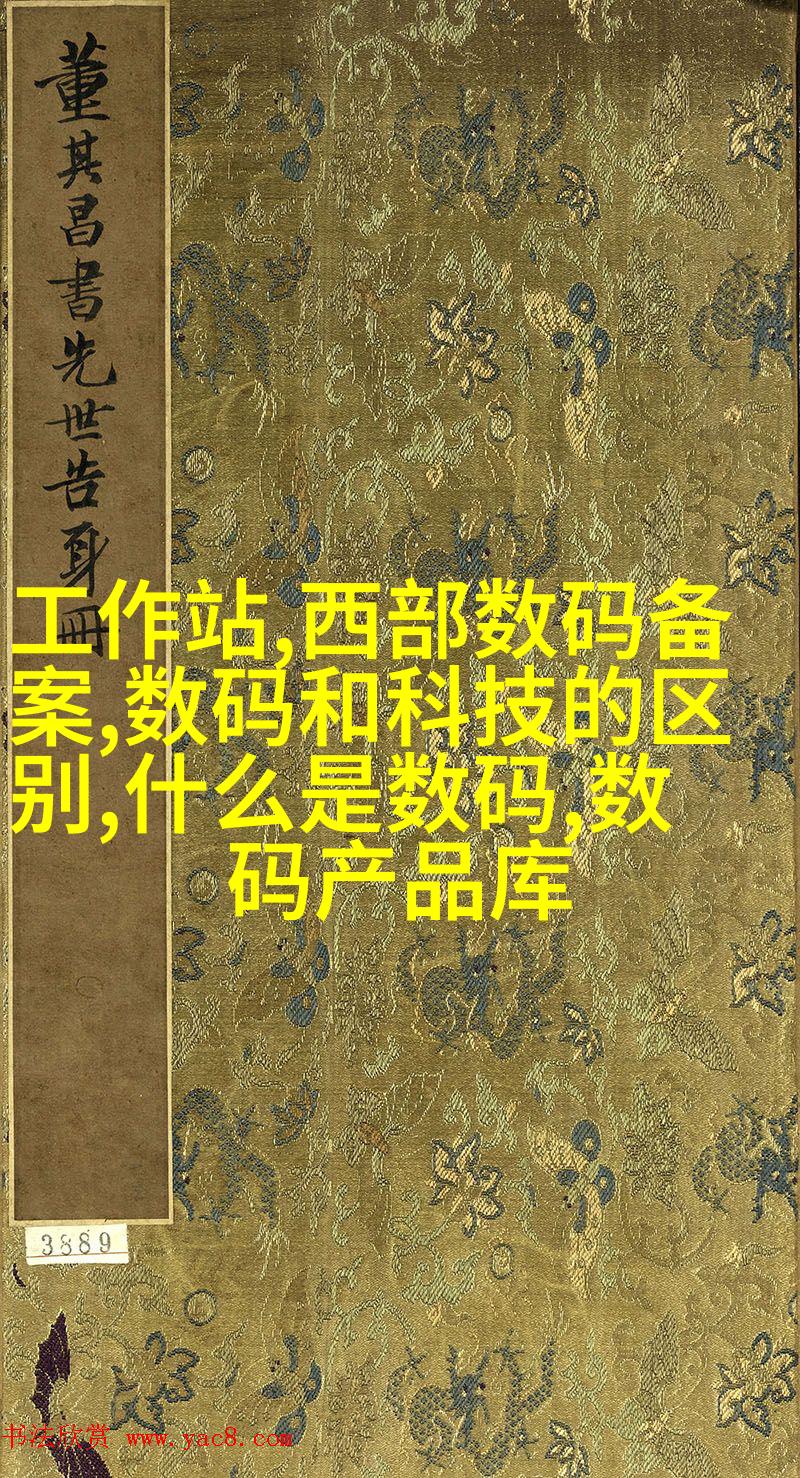 董其昌書先世告身冊
工作站,西部数码备
案,数码和科技的区
别,什么是数码,数
码产品库
3889
书法欣赏 www.yac8.com